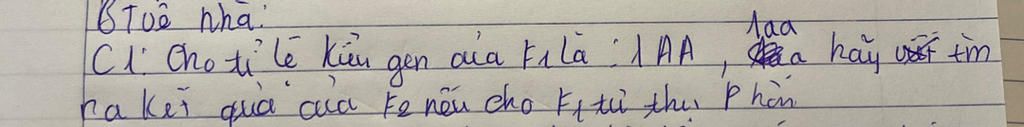 BTVề nhà:
C1: Cho tỉ lệ kiểu gen của F1 là : 1 AA , 1aa hãy tìm
ra kết quả của F2 nếu cho F1 tự thụ phấn